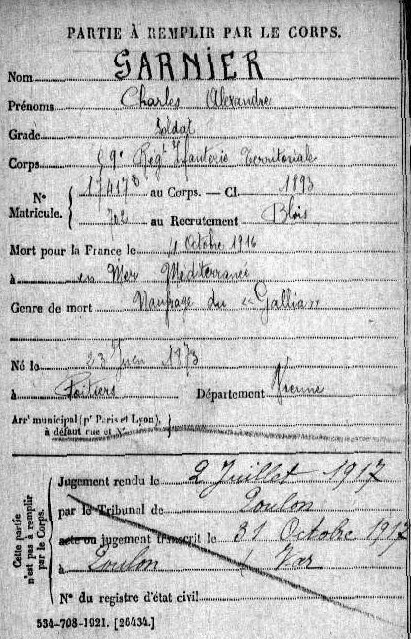 PARTIE À REMPLIR PAR LE CORPS.
Nom GARNIER
Prénoms Charles Alexandre
Grade Soldat
Corps 9e Régt Infanterie Territoriale
No Matricule. 174178 au Corps. — Cl. 1893
702 au Recrutement Blois
Mort pour la France le 4 Octobre 1916
à en Mer Méditerranée
Genre de mort Naufrage du "Gallia"
Né le 23 Juin 1873
à Poitiers Département Vienne
Arrt municipal (pr Paris et Lyon),
à défaut rue et No.
Cette partie n'est pas à remplir par le Corps.
Jugement rendu le 2 Juillet 1917
par le Tribunal de Toulon
acte ou jugement transcrit le 31 Octobre 1917
à Toulon Var
No du registre d'état civil
534-708-1921. [26434.]